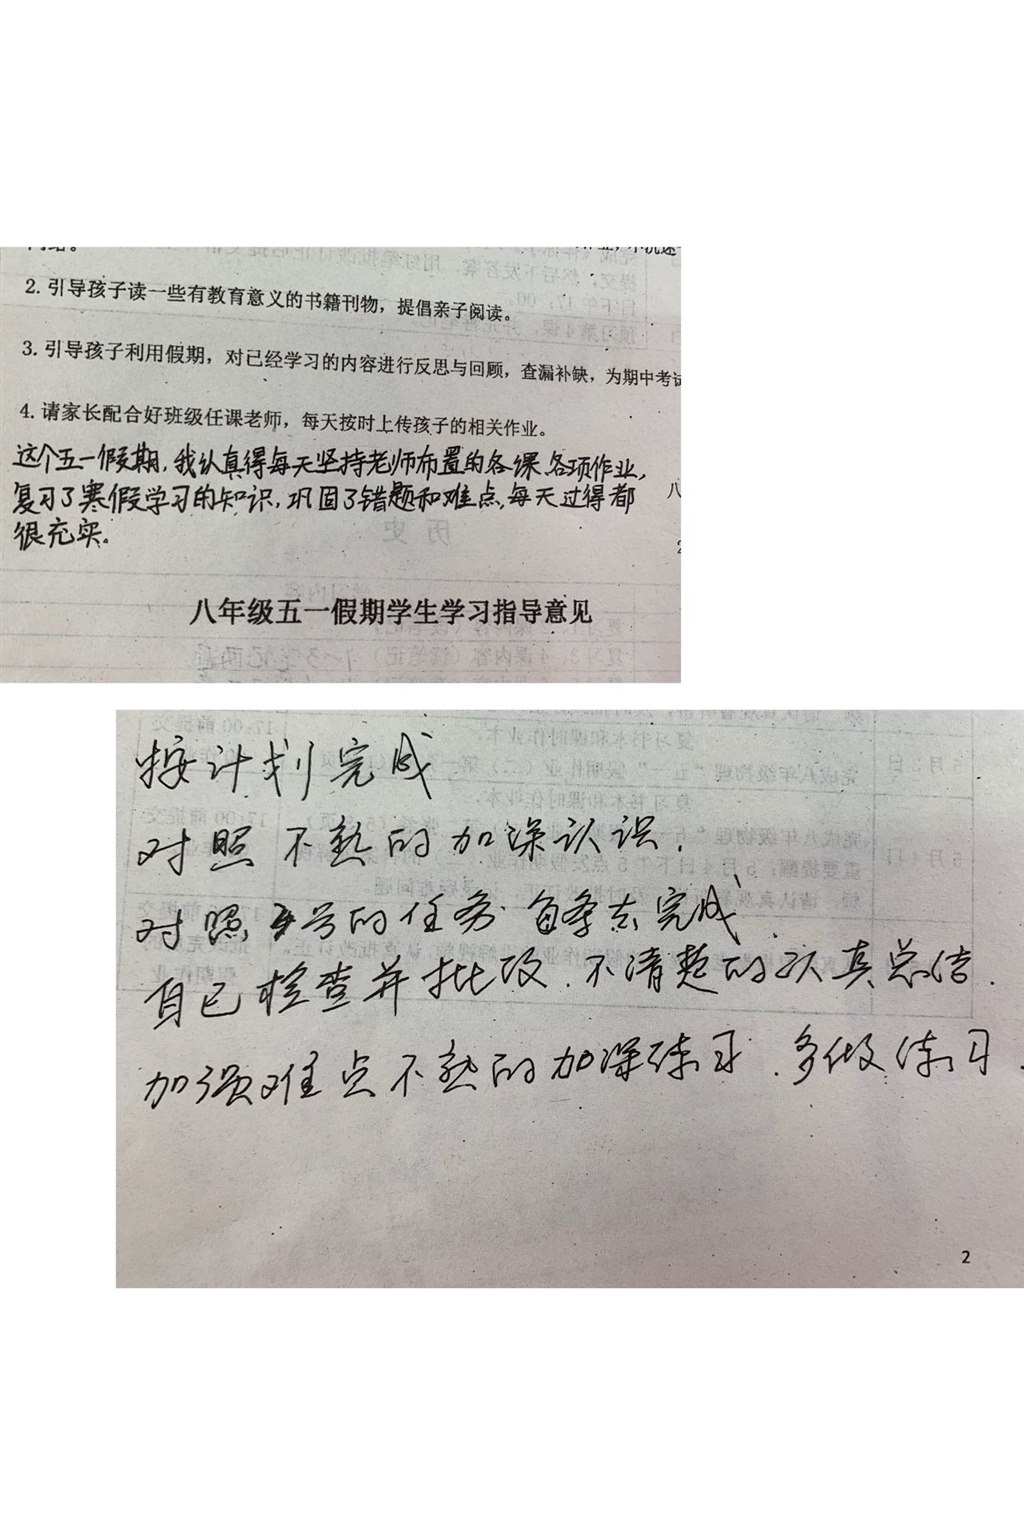 2. 引导孩子读一些有教育意义的书籍刊物，提倡亲子阅读。
3. 引导孩子利用假期，对已经学习的内容进行反思与回顾，查漏补缺，为期中考试
4. 请家长配合好班级任课老师，每天按时上传孩子的相关作业。
这个五一假期，我认真得每天坚持老师布置的各课各项作业，
复习了寒假学习的知识，巩固了错题和难点，每天过得都
很充实。
八年级五一假期学生学习指导意见
按计划完成
对照不熟的加深认识.
对照4号的任务 自条去完成
自已检查并批改.不清楚的认真总结.
加强难点不熟的加深练习.多做练习.
2